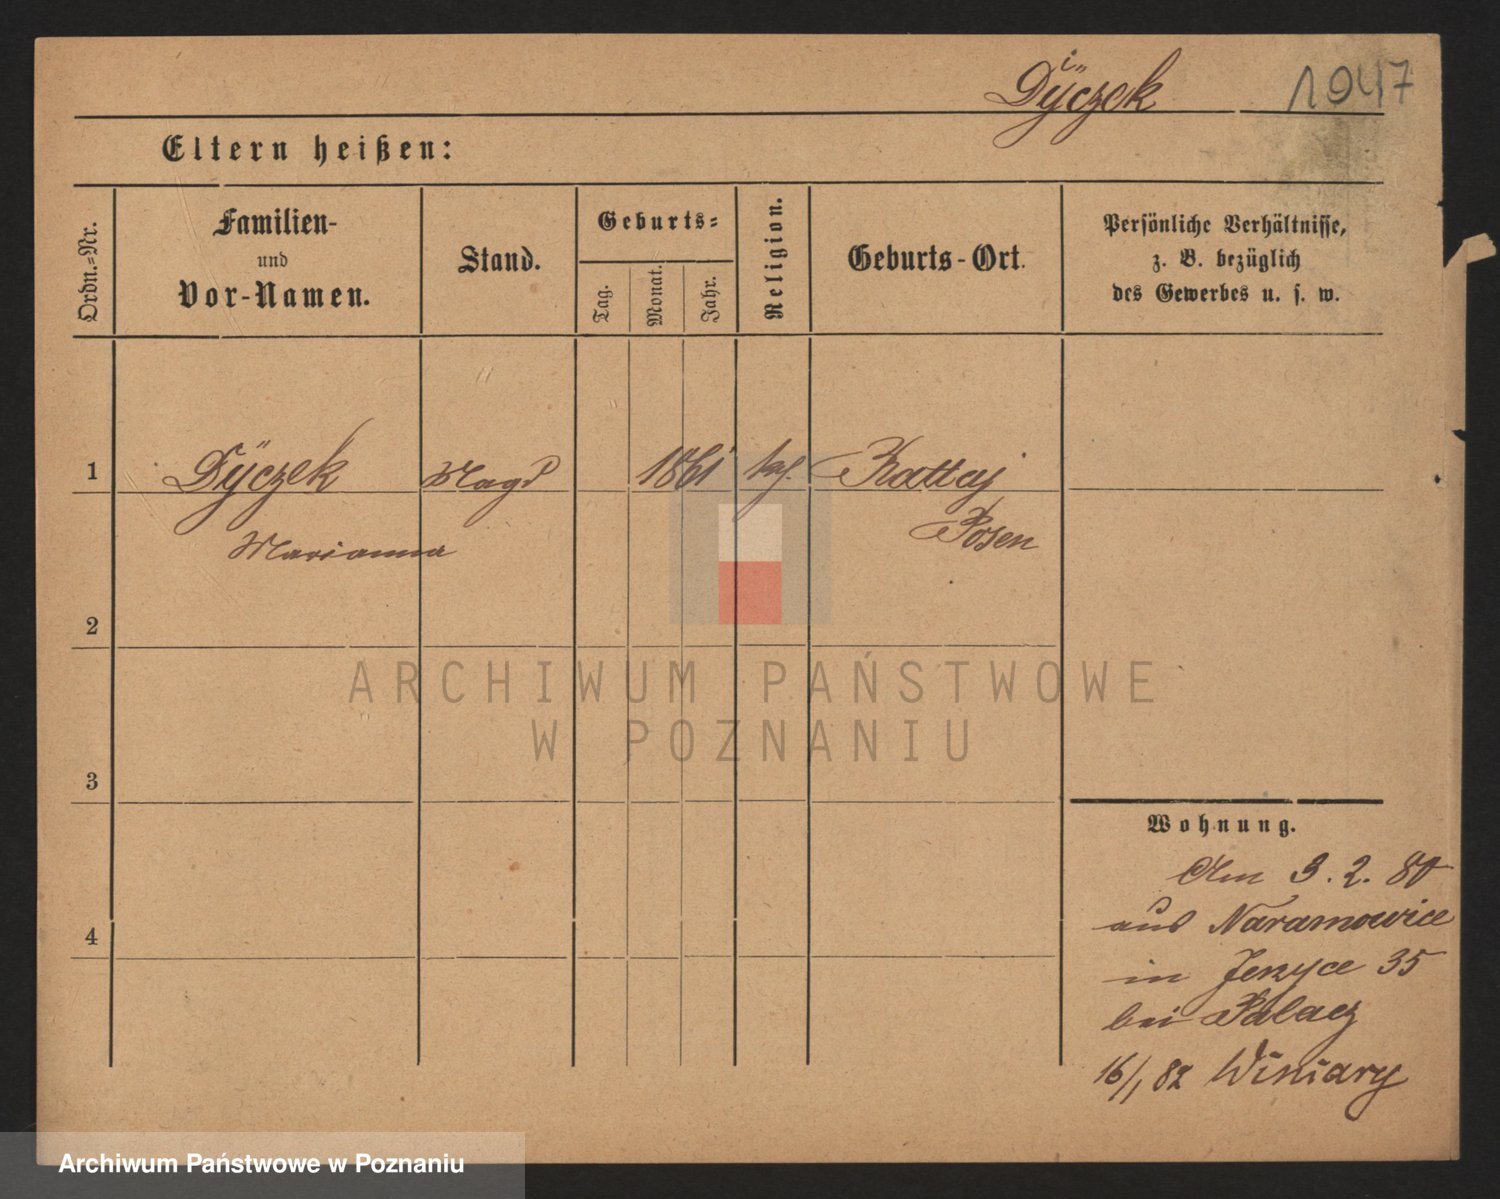 Dÿczek 1947
Eltern heißen:
Ordn.=Nr.
Familien-
und
Vor-Namen.
Stand.
Geburts=
Tag.
Monat.
Jahr.
Religion.
Geburts-Ort.
Persönliche Verhältnisse,
z. B. bezüglich
des Gewerbes u. s. w.
1 Dÿczek Magd 1861 kath. Rattaj
Marianna Posen
2
3
4
Wohnung.
Am 3. 2. 80
aus Naramowice
in Jerzyce 35
bei Palacz
16/1 82 Winiary
ARCHIWUM PAŃSTWOWE
W POZNANIU
Archiwum Państwowe w Poznaniu